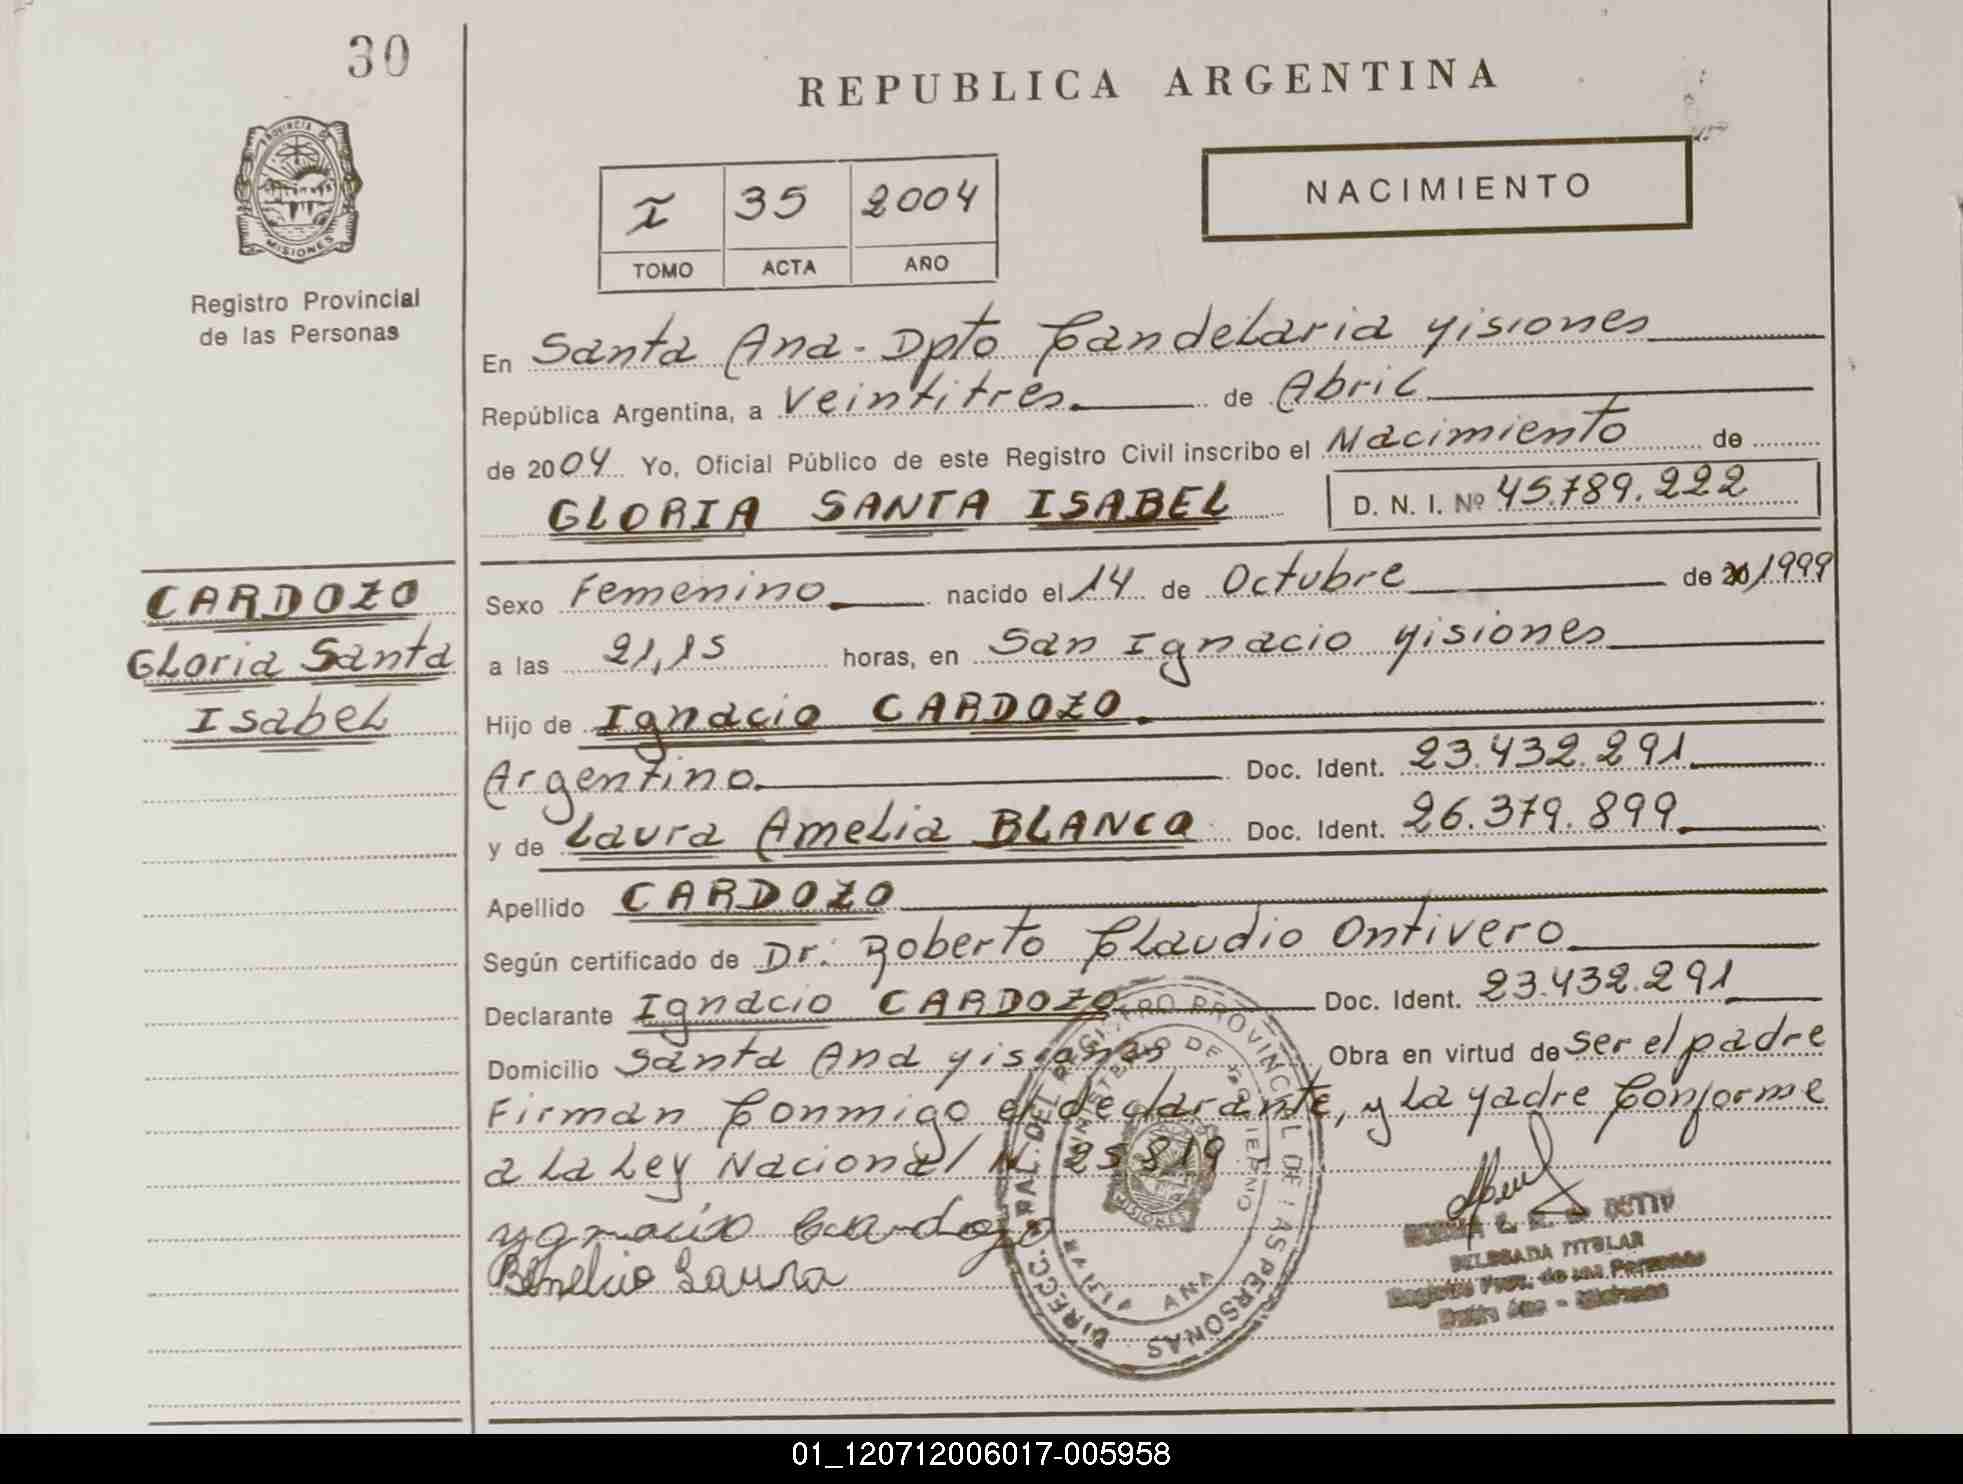 30
REPUBLICA ARGENTINA
PROVINCIA DE
MISIONES
Registro Provincial
de las Personas
I 35 2004
TOMO ACTA AÑO
NACIMIENTO
En Santa Ana - Dpto Candelaria Misiones
República Argentina, a Veintitres de Abril
de 2004 Yo, Oficial Público de este Registro Civil inscribo el Nacimiento de
GLORIA SANTA ISABEL D. N. I. Nº 45.789.222
CARDOZO
Gloria Santa
Isabel
Sexo Femenino nacido el 14 de Octubre de 1999
a las 21,15 horas, en San Ignacio Misiones
Hijo de Ignacio CARDOZO
Argentino Doc. Ident. 23.432.291
y de Laura Amelia BLANCO Doc. Ident. 26.379.899
Apellido CARDOZO
Según certificado de Dr. Roberto Claudio Ontivero
Declarante Ignacio CARDOZO Doc. Ident. 23.432.291
Domicilio Santa Ana Misiones Obra en virtud de ser el padre
Firman Conmigo el declarante, y La Madre Conforme
a La Ley Nacional N 25819
ygnacio Cardozo
Laura
DIRECC. GRAL. DEL REGISTRO PROVINCIAL DE LAS PERSONAS
MINISTERIO DE GOBIERNO
SANTA ANA
MISIONES
DELEGADA TITULAR
Registro Prov. de las Personas
Santa Ana - Misiones
01_120712006017-005958